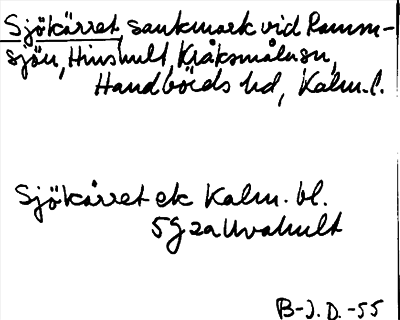 Sjökärret, sankmark vid Ramm-
sjön, Hinshult, Kråksmåla sn,
Handbörds hd, Kalm. l.
Sjökärret ek Kalm. bl.
5G 2a Uvahult
B-J. D. -55